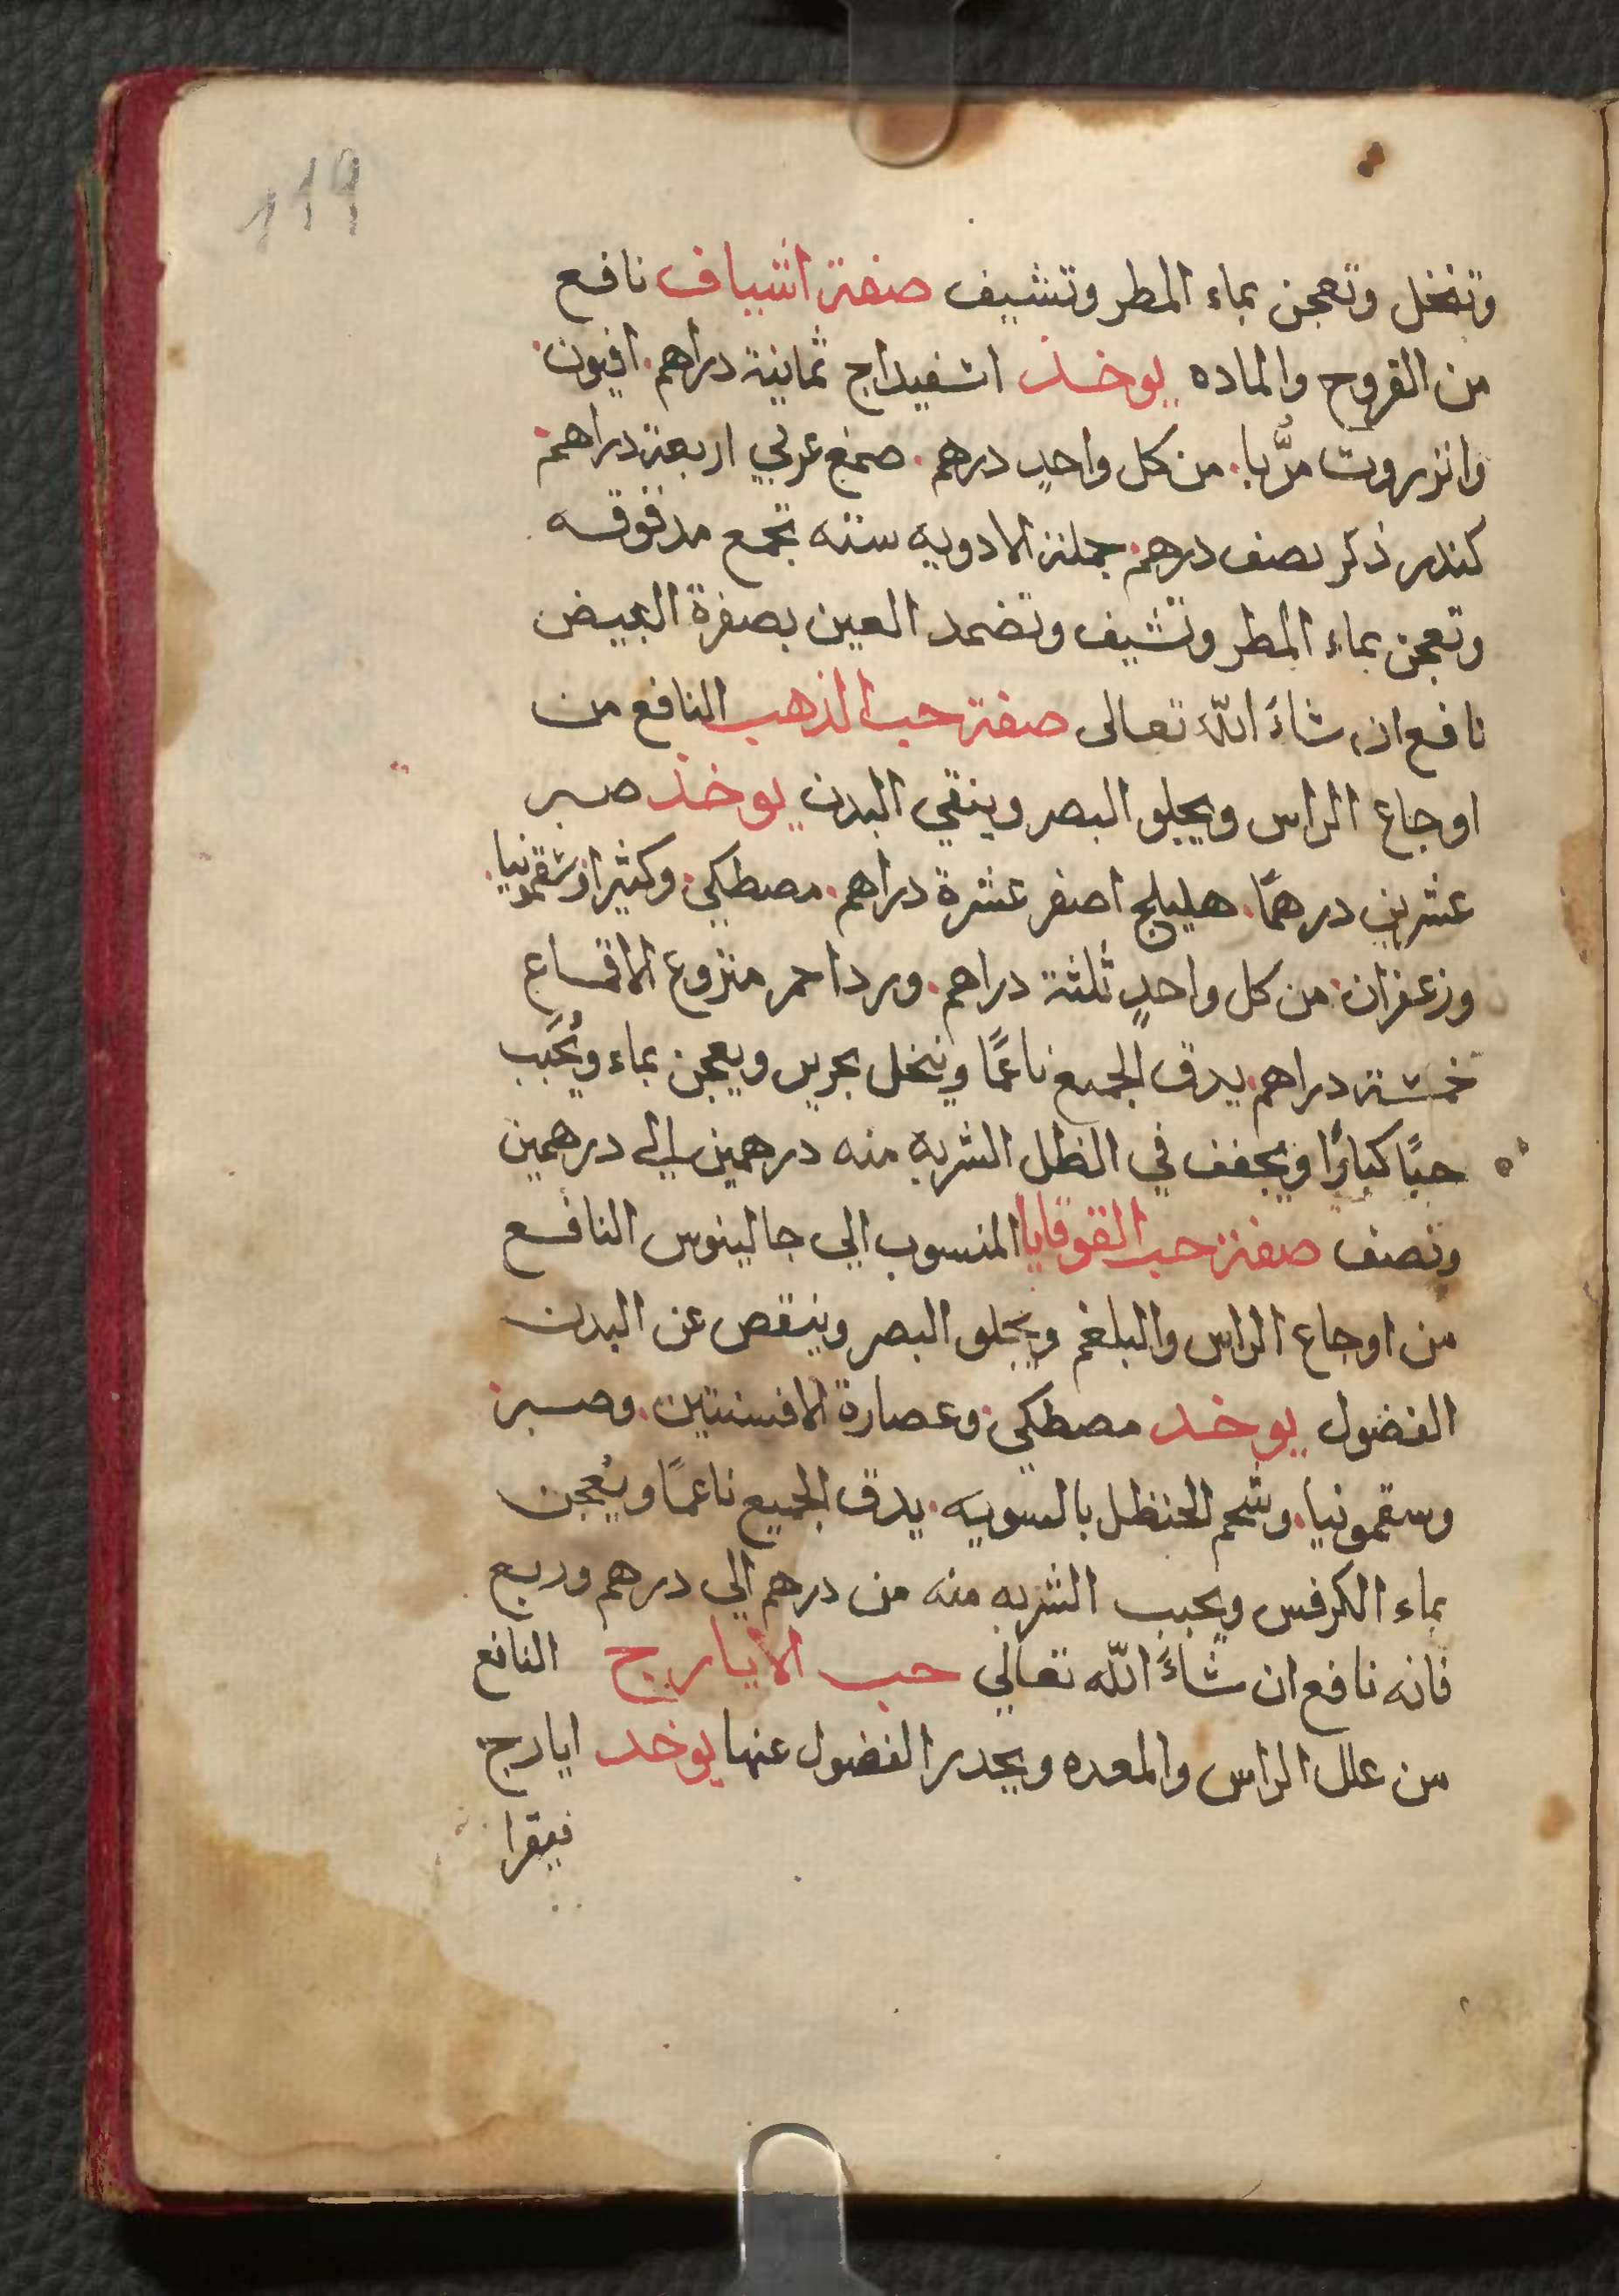 119
وتنخل وتعجن بماء المطر وتشيف صفة اشياف نافع
من القروح والماده يوخذ اسفيداج ثمانية دراهم. افيون.
وانزروت مرّبا. من كل واحدٍ درهم. صمغ عربي اربعة دراهم.
كندر ذكر نصف درهم. جملة الادويه ستته تجمع مدقوقه
وتعجن بماء المطر وتشيف وتضمد العين بصفرة البيض
نافع ان شاءَ اللّه تعالى صفة حب الذهب النافع من
اوجاع الراس ويجلو البصر وينقي البدن يوخذ صبر
عشرين درهمًا. هليلج اصفر عشرة دراهم. مصطكي. وكثيرا. وسقمونيا.
وزعفران. من كل واحدٍ ثلثة دراهم. ورد احمر منزوع الاقماع
خمسة دراهم. يدق الجميع ناعمًا وينخل بحرير ويعجن بماء ويُحَبب
حبًا كبارًا ويجفف في الظل الشربه منه درهمين الي درهمين
ونصف صفة حب القوقايا المنسوب الي جالينوس النافع
من اوجاع الراس والبلغم ويجلو البصر وينقص عن البدن
الفضول يوخد مصطكي. وعصارة الافسنتين. وصبر.
وسقمونيا. وشحم الحنظل بالسويه. يدق الجميع ناعمًا ويُعجن
بماء الكرفس ويحبب الشربه منه من درهم الي درهم وربع
فانه نافع ان شاءَ اللّه تعالي حب الايارج النافع
من علل الراس والمعده ويحدر الفضول عنها يوخد ايارج
فيقرا